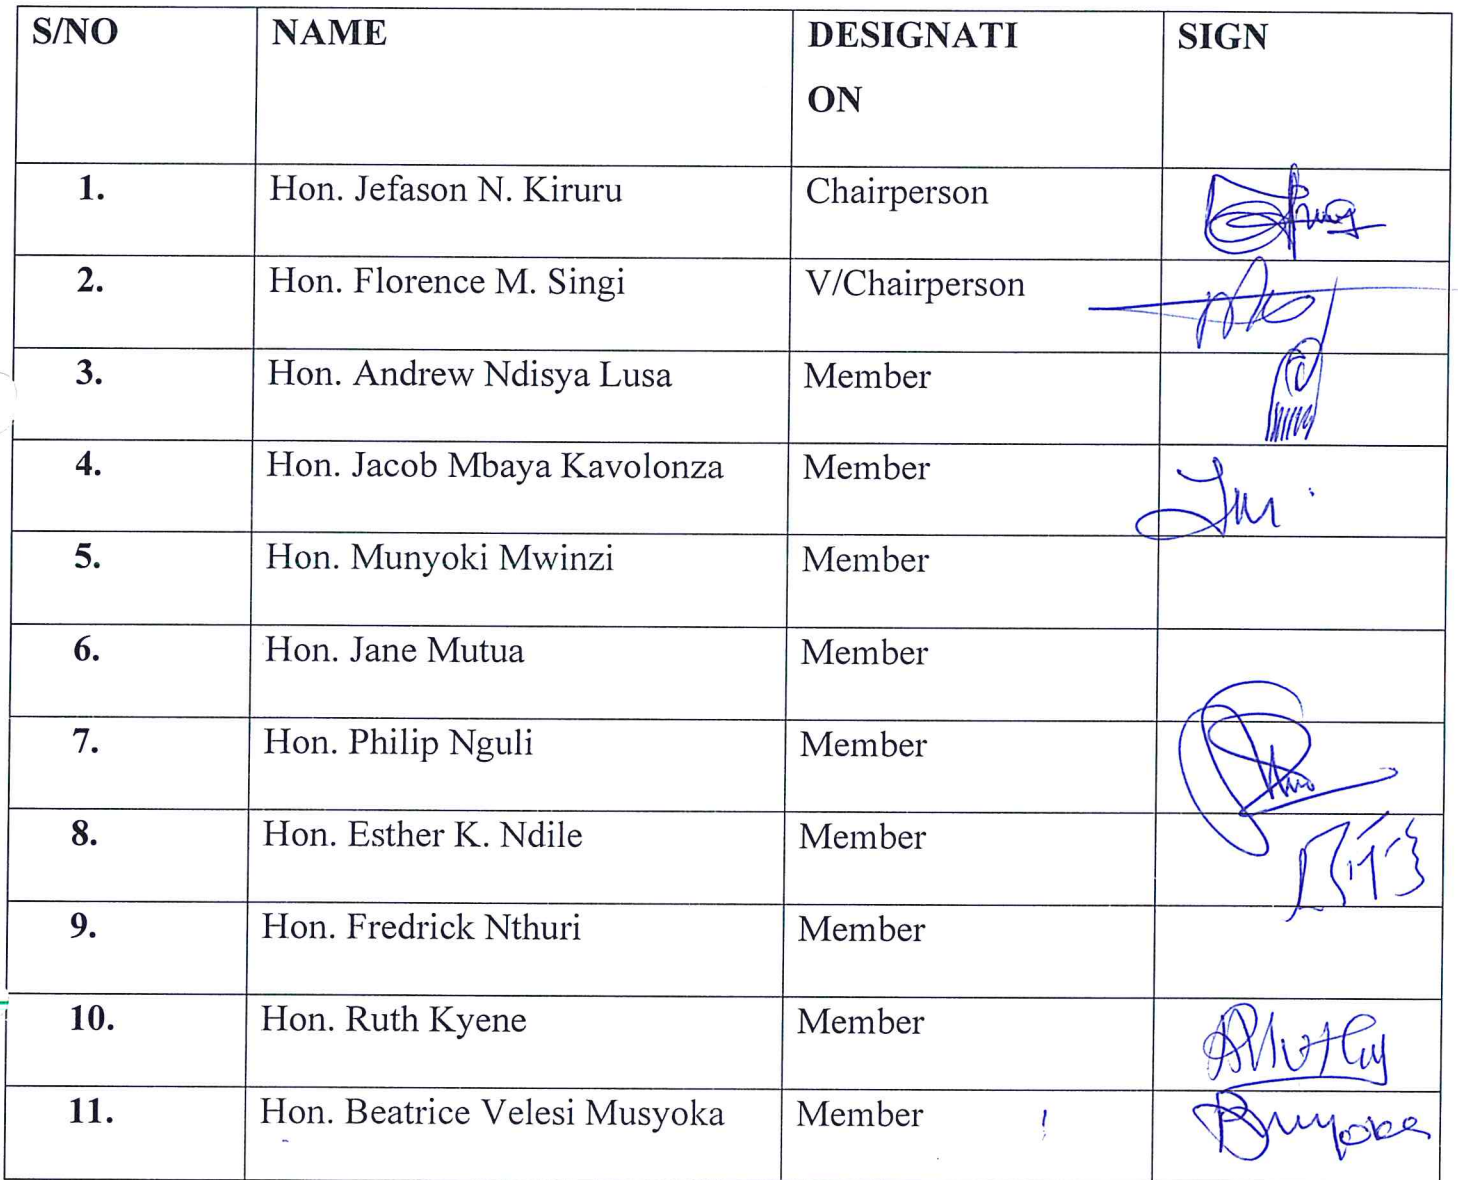 S/NO NAME DESIGNATI SIGN
ON
1. Hon. Jefason N. Kiruru Chairperson
2. Hon. Florence M. Singi V/Chairperson
3. Hon. Andrew Ndisya Lusa Member
4. Hon. Jacob Mbaya Kavolonza Member
5. Hon. Munyoki Mwinzi Member
6. Hon. Jane Mutua Member
7. Hon. Philip Nguli Member
8. Hon. Esther K. Ndile Member
9. Hon. Fredrick Nthuri Member
10. Hon. Ruth Kyene Member
11. Hon. Beatrice Velesi Musyoka Member